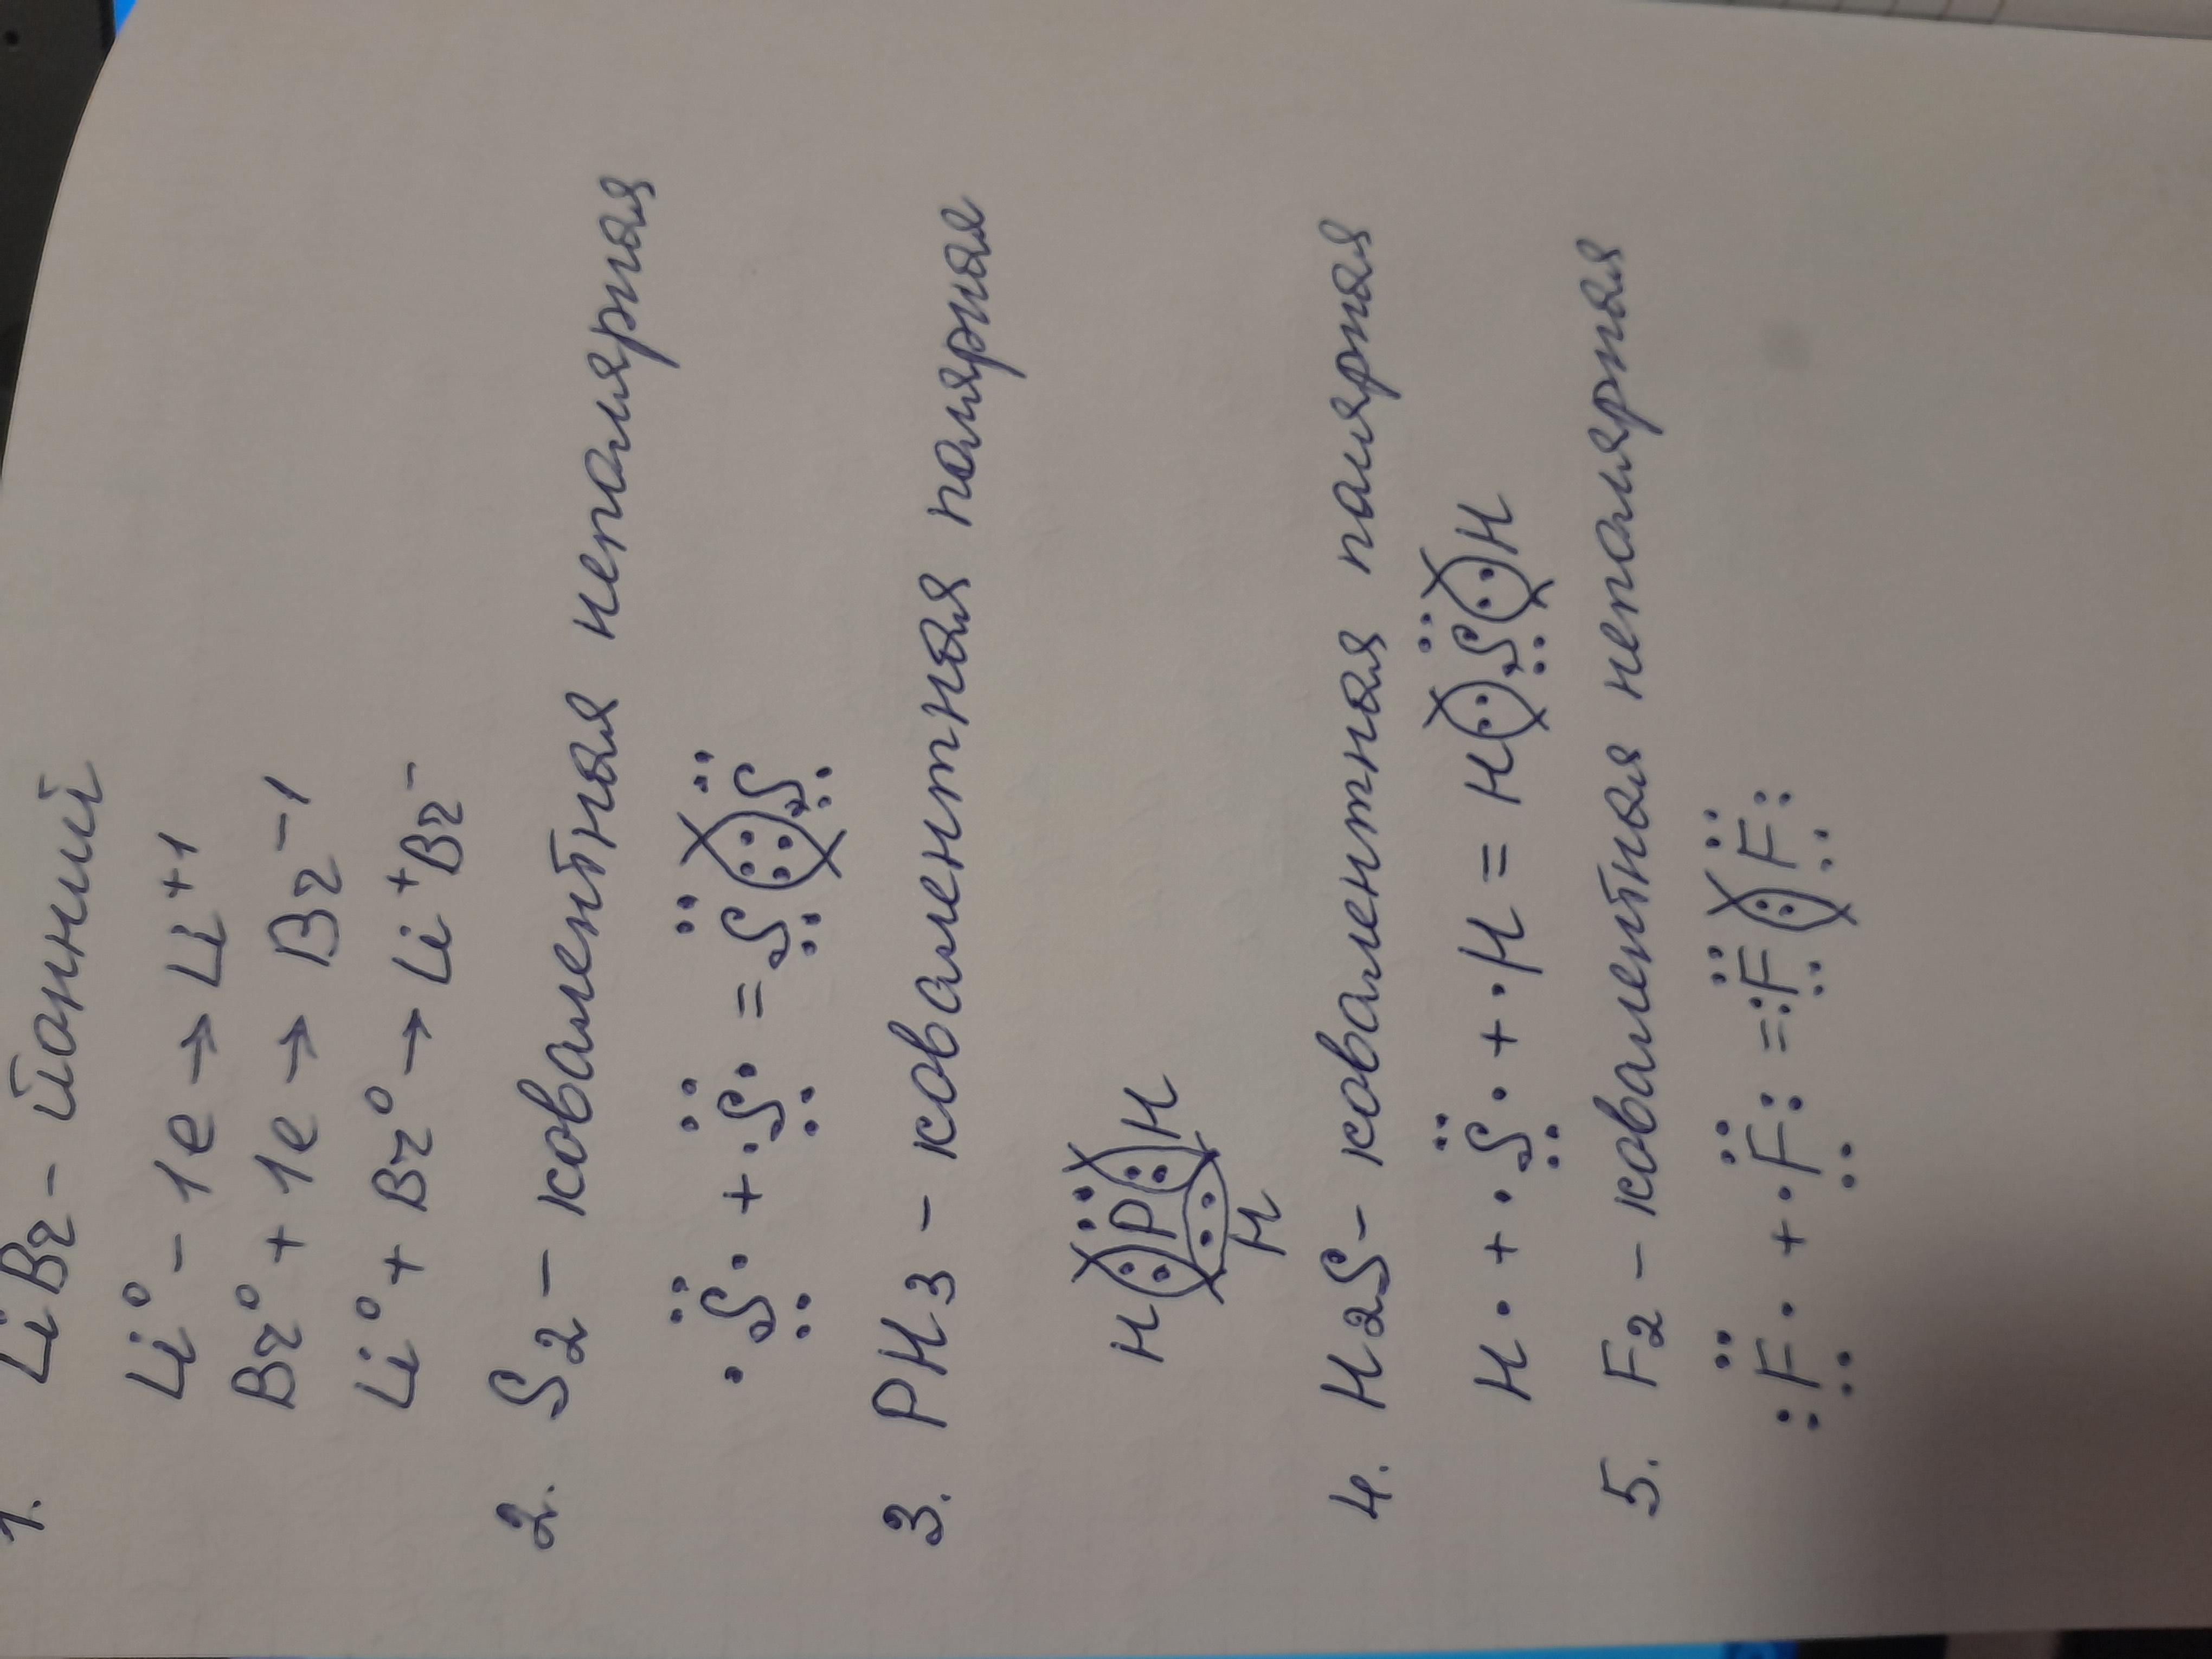 1. LiBr - йонний
Li⁰ - 1e → Li⁺¹
Br⁰ + 1e → Br⁻¹
Li⁰ + Br⁰ → Li⁺Br⁻
2. S₂ - ковалентная неполярная
·S̤̈· + ·S̤̈· = S̤̈(::)S̤̈
3. PH₃ - ковалентная полярная
H(:)P̈(:)H
(··)
H
4. H₂S - ковалентная палярная
H· + ·S̤̈· + ·H = H(:)S̤̈(:)H
5. F₂ - ковалентная неполярная
:F̤̈· + ·F̤̈: = :F̤̈(:)F̤̈: